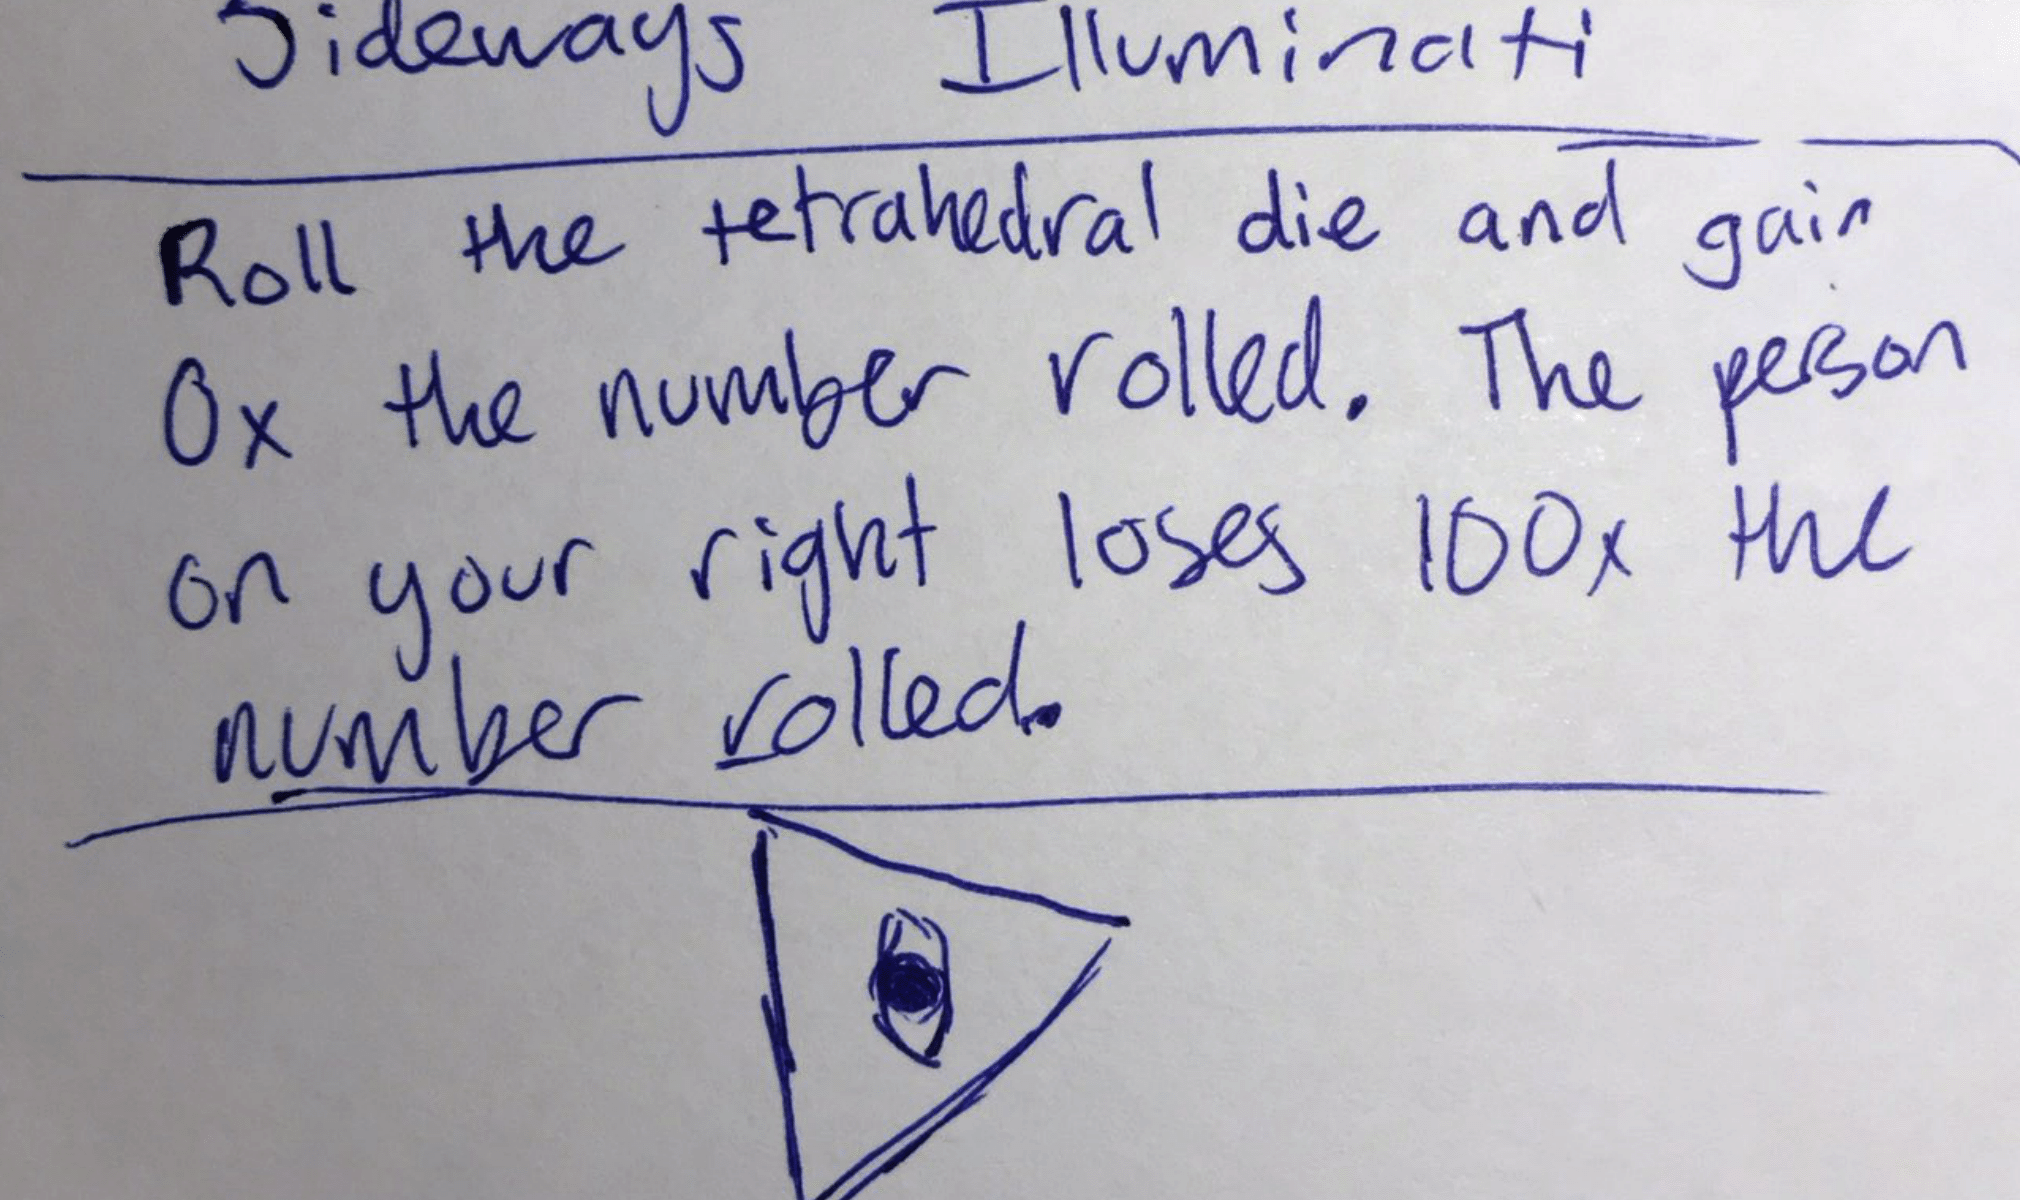 Sideways Illuminati
Roll the tetrahedral die and gain
0x the number rolled. The person
on your right loses 100x the
number rolled.